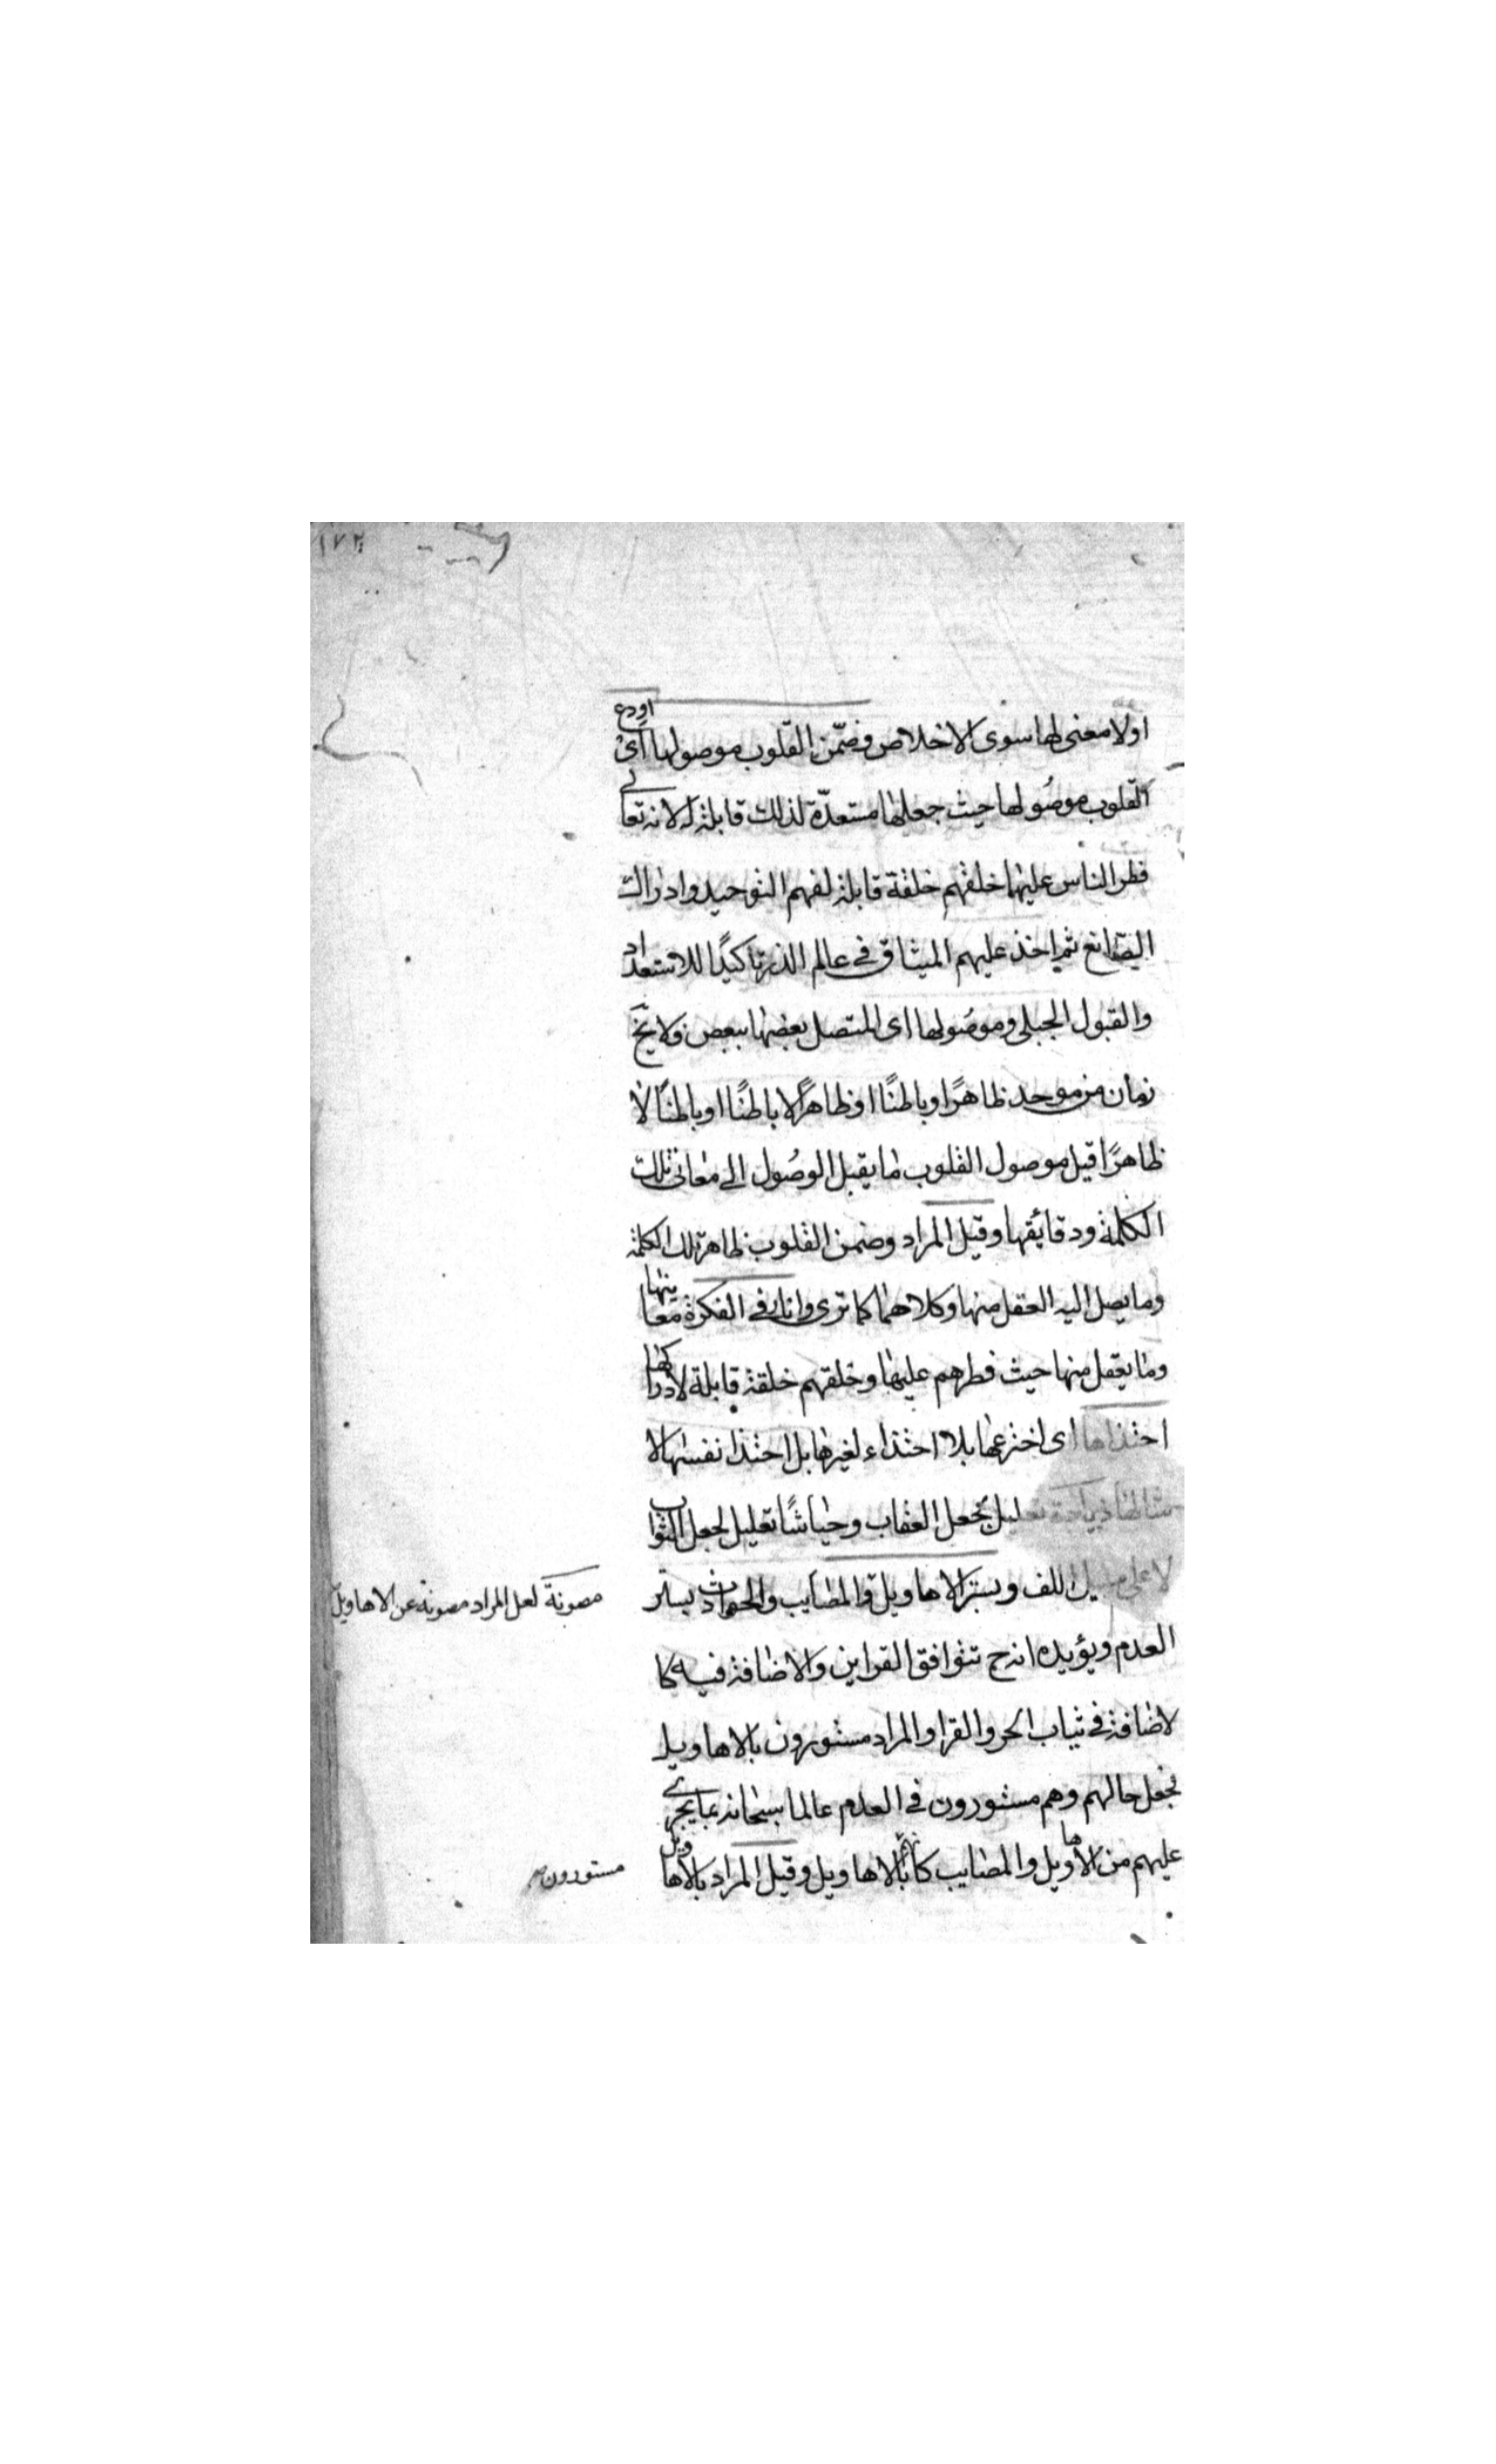 ١٧٢
اولا معنى لها سوى الاخلاص وضمّن القلوب موصولها اى اودع
القلوب موصُولها حيث جعلها مستعدّة لذلك قابلة له لانه تعالى
فطر الناس عليها خلقهم خلقة قابلة لفهم التوحيد وادراك
الصّانع ثم اخذ عليهم الميثاق فى عالم الذر تاكيدًا للاستعداد
والقبول الجبلى وموصُولها اى المتصل بعضها ببعض فلا يخ
زمان من موحد ظاهرًا وباطنًا او ظاهرًا لا باطنًا او باطنًا لا
ظاهرًا قيل موصول القلوب ما يقبل الوصُول الى معانى تلك
الكلمة ودقائقها وقيل المراد وضمن القلوب ظاهر تلك الكلمة
وما يصل اليه العقل منها وكلاهما كما ترى وانار فى الفكرة معاينها
وما يعقل منها حيث فطرهم عليها وخلقهم خلقة قابلة لادراكها
احتذاها اى اخترعها بلا احتذاء لغيرها بل احتذا نفسها لا
مثالها ذيادة تعليل لجعل العقاب وحياشًا تعليل لجعل الثواب
لا على اللف وبستر الاهاويل والمصايب والحوادث بستر
العدم ويؤيده انه ح تتوافق القراين والاضافة فيه كا
لاضافة فى ثياب الحر والقر او المراد مستورون بالاهاويل
فجعل حالهم وهم مستورون فى العدم عالما سبحانه بما يجرى
عليهم من الاهاويل والمصايب كانهم بالاهاويل وقيل المراد بالاهاويل
مصونة لعل المراد مصونة عن الاهاويل
مستورون